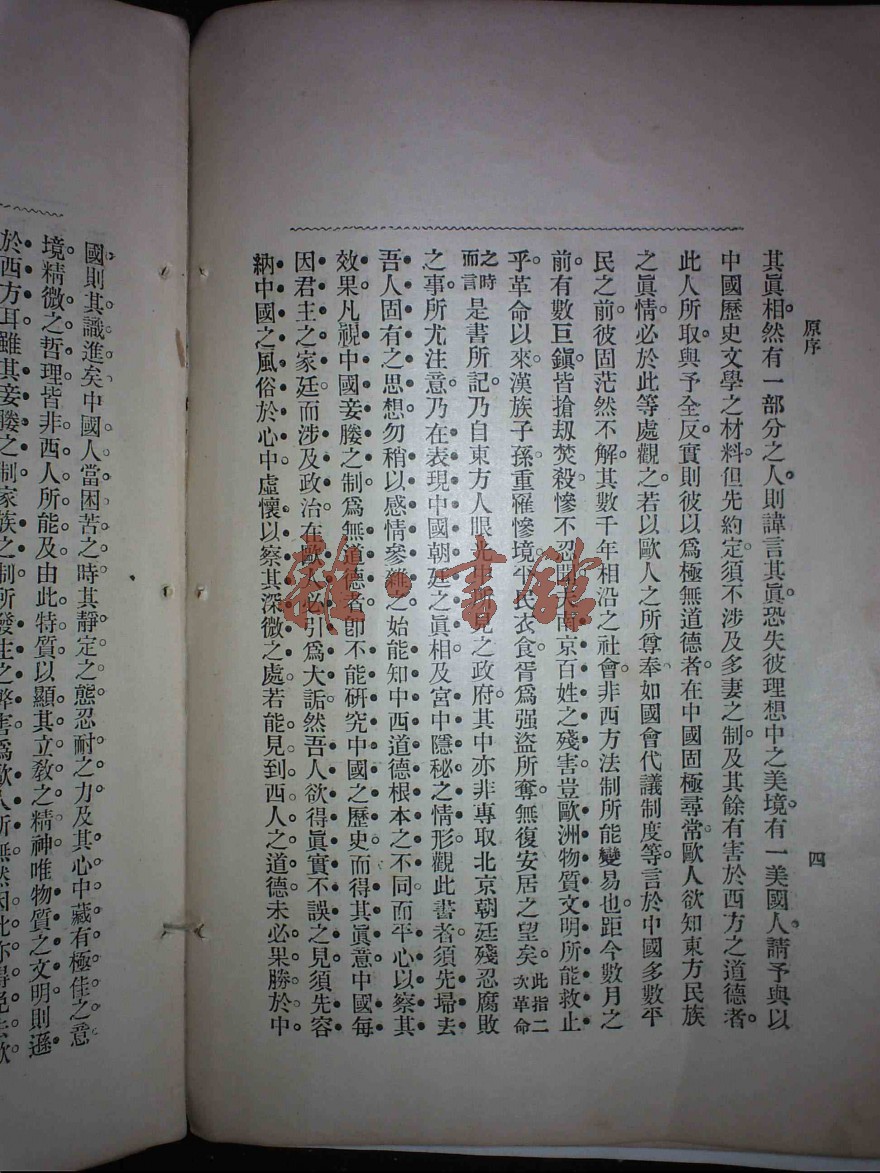 原序
四
其眞相然有一部分之人則諱言其眞恐失彼理想中之美境有一美國人請予與以
中國歷史文學之材料但先約定須不涉及多妻之制及其餘有害於西方之道德者
此人所取與予全反實則彼以爲極無道德者在中國固極尋常歐人欲知東方民族
之眞情必於此等處觀之若以歐人之所尊奉如國會代議制度等言於中國多數平
民之前彼固茫然不解其數千年相沿之社會非西方法制所能變易也距今數月之
前有數巨鎭皆搶刼焚殺慘不忍聞夫南京百姓之殘害豈歐洲物質文明所能救止
乎革命以來漢族子孫重罹慘境平民衣食胥爲强盜所奪無復安居之望矣此指二次革命
之時而言是書所記乃自東方人眼光中所見之政府其中亦非專取北京朝廷殘忍腐敗
之事所尤注意乃在表現中國朝廷之眞相及宮中隱秘之情形觀此書者須先掃去
吾人固有之思想勿稍以感情參雜之始能知中西道德根本之不同而平心以察其
效果凡視中國妾媵之制爲無道德者卽不能研究中國之歷史而得其眞意中國每
因君主之家廷而涉及政治在歐人必引爲大詬然吾人欲得眞實不誤之見須先容
納中國之風俗於心中虛懷以察其深微之處若能見到西人之道德未必果勝於中
國則其識進矣中國人當困苦之時其靜定之態忍耐之力及其心中藏有極佳之意
境精微之哲理皆非西人所能及由此特質以顯其立敎之精神唯物質之文明則遜
於西方耳雖其妾媵之制家族之制所發生之弊害爲歐人所無然因此亦得免去歐
雜·書館